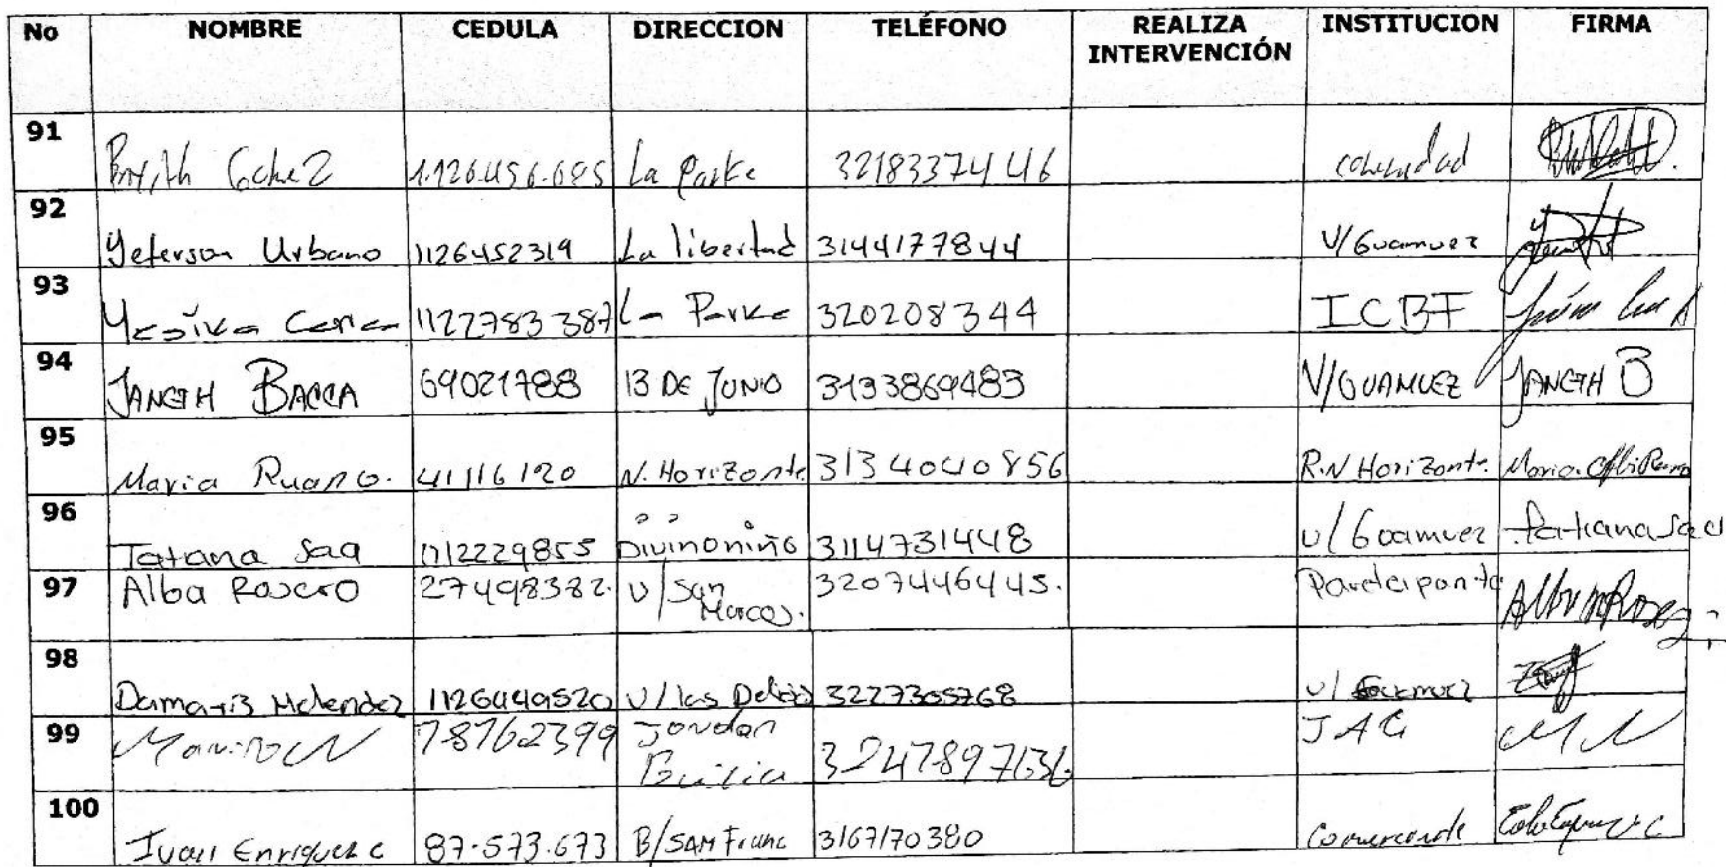 No NOMBRE CEDULA DIRECCION TELÉFONO REALIZA INTERVENCIÓN INSTITUCION FIRMA
91 La Parke 3218337446 comunidad
92 Yeferson Urbano 1126452319 La libertad 3144177844 V/Guamuez
93 1122783387 La Parke 320208344 ICBF
94 JANETH BACCA 69021788 13 DE JUNIO 3193869483 V/GUAMUEZ JANETH B
95 Maria Ruano. 41116120 N. Horizonte 3134040856 R.N Horizonte. Maria
96 Tatiana Saa 1112229855 Divinoniño 3114731448 v/Guamuez Tatiana Saa
97 Alba Rosero 27498382. V/San Marcos. 3207446445. Participante
98 Damaris Melendez 1126449520 V/las Delicias 3227305768 v/ Guamuez
99 Jordan 3247897636
100 Ivan Enriquez c 87-573.673 B/SAM Franc 3167170380 Comerciante